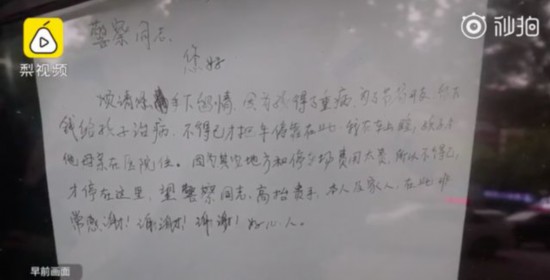 梨视频
秒拍
警察同志
您好
烦请您手下留情,因为孩子得了重病,为了省钱
钱给孩子治病,不得已才把车停靠在此,孩子和
他母亲在医院住。因为其它地方和停车场费用太贵,所以不得已
才停在这里,望警察同志,高抬贵手,本人及家人,在此非
常感谢!谢谢!谢谢!好心人。
早前画面